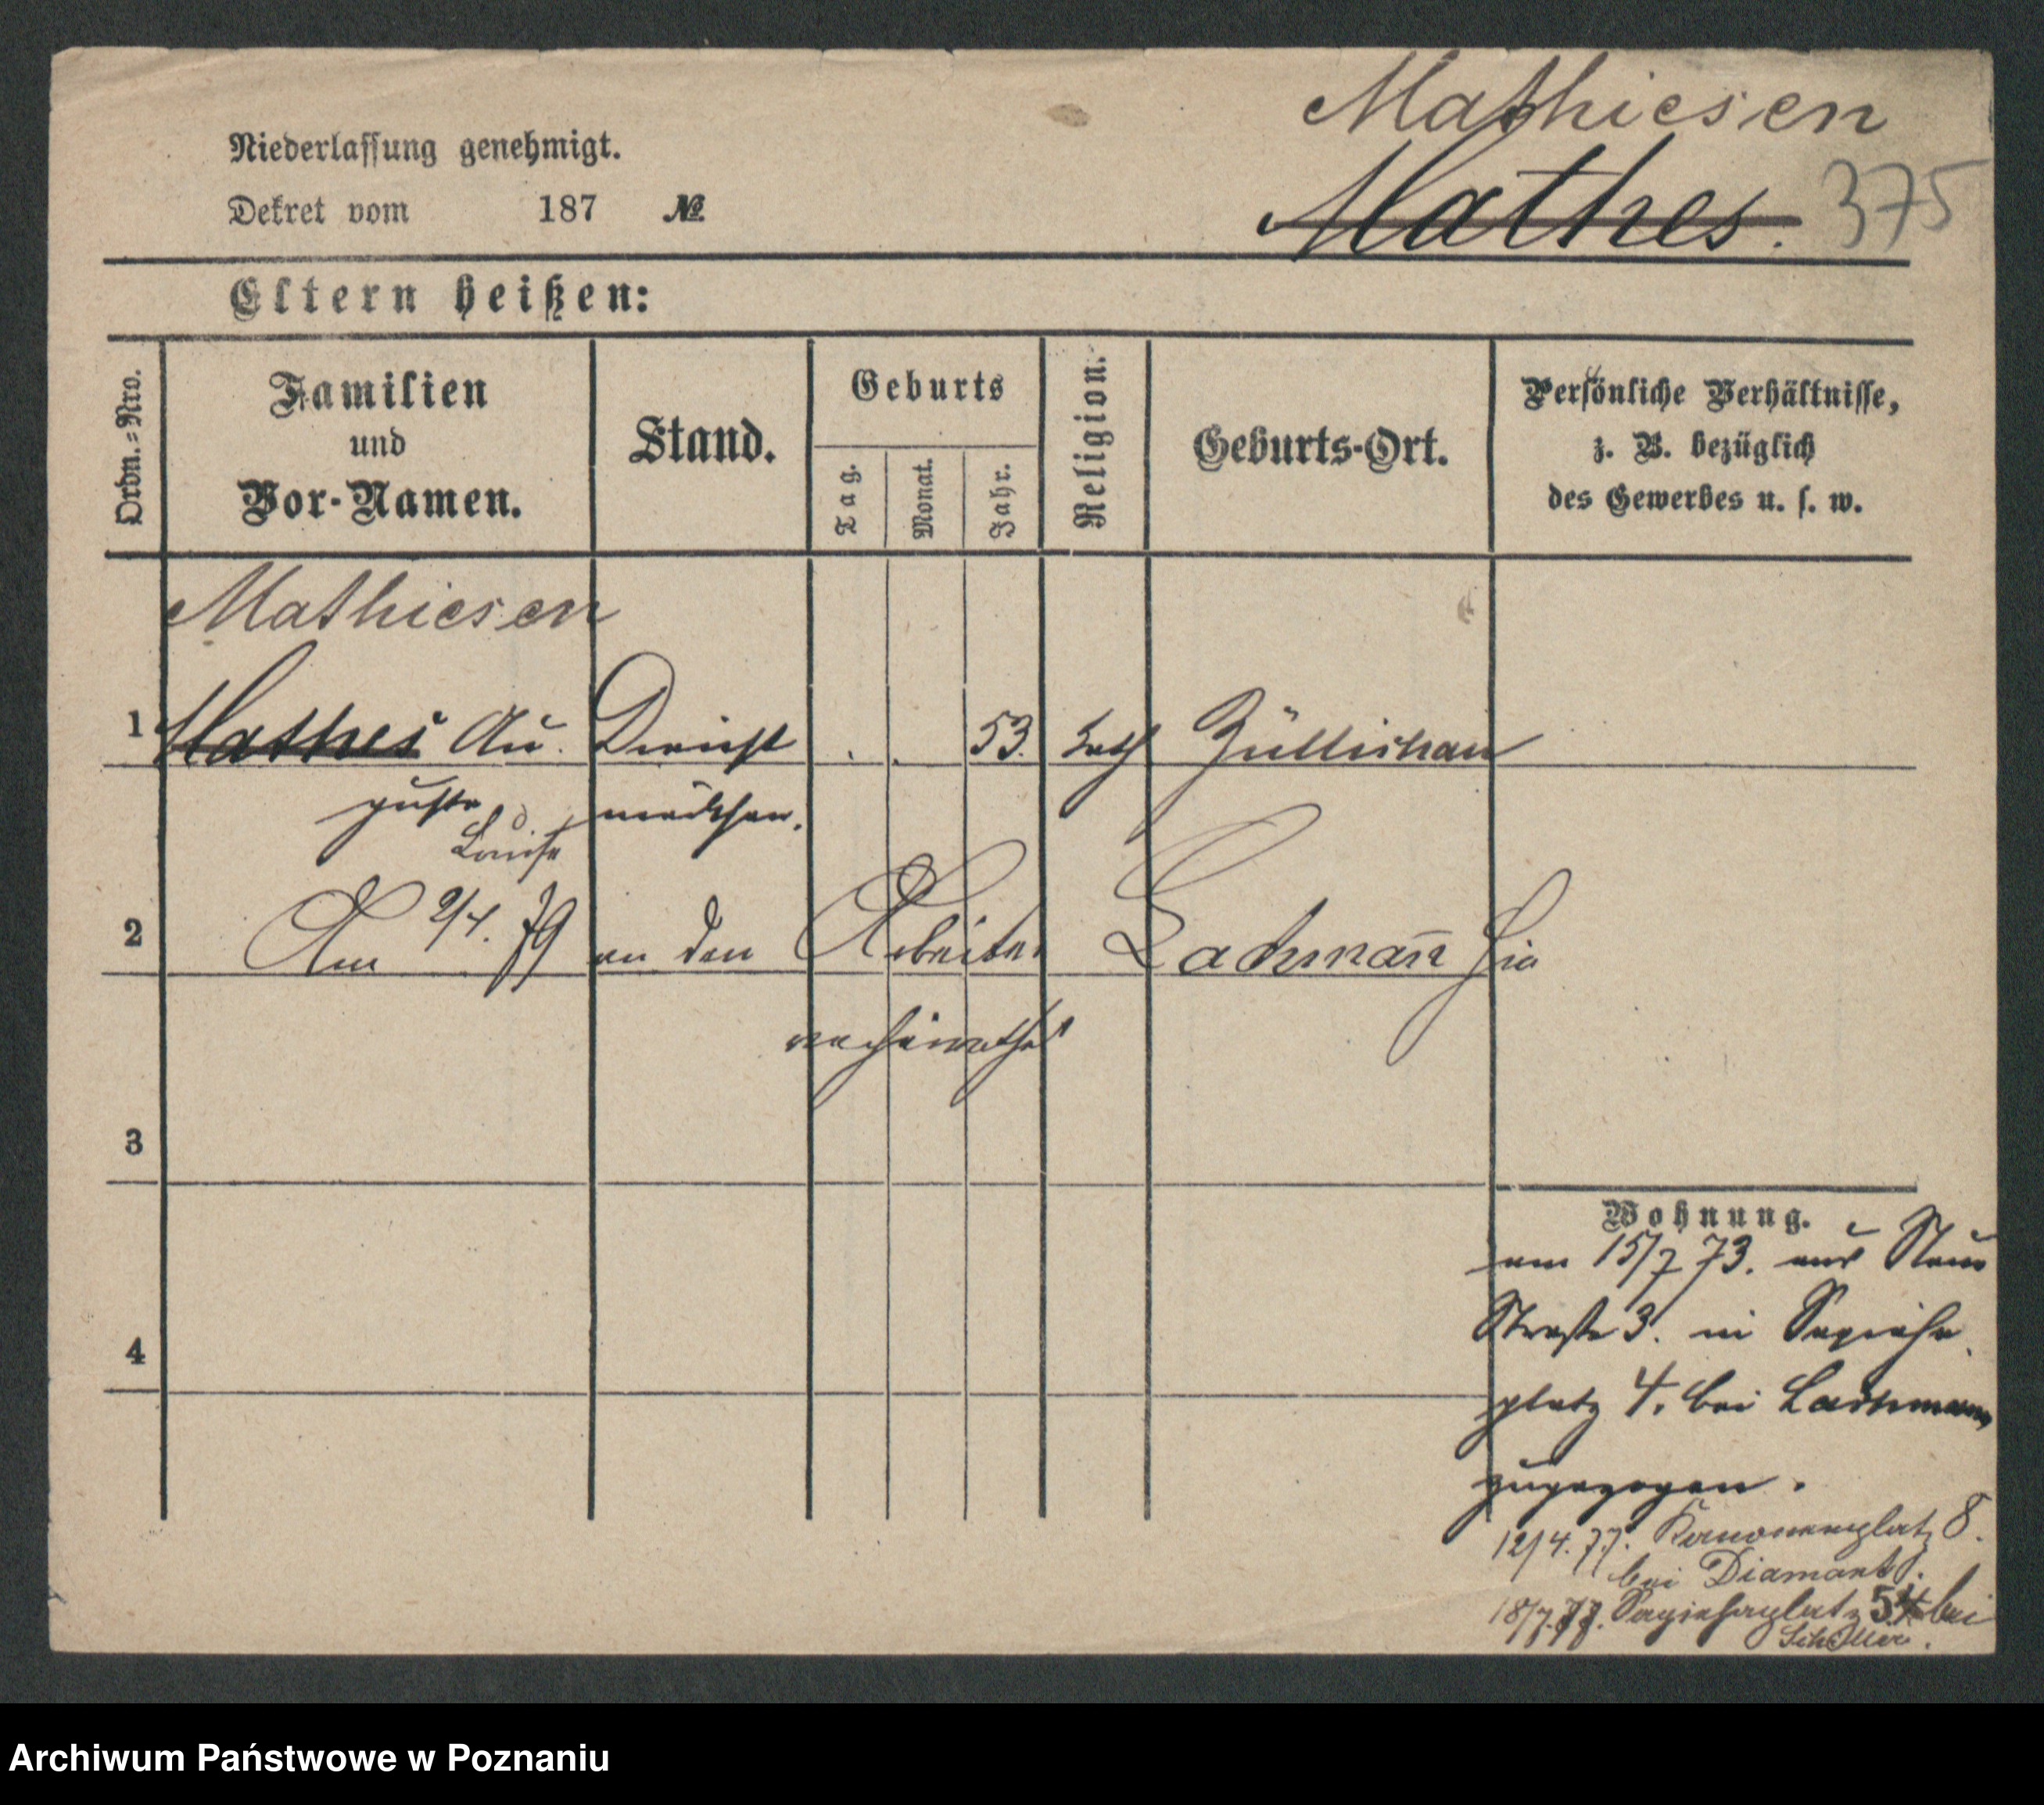 Mathiesen
Niederlassung genehmigt.
Mathes. 375
Dekret vom 187 №
Eltern heißen:
Ordn.-Nro.
Familien und Vor-Namen.
Stand.
Geburts
Tag.
Monat.
Jahr.
Religion.
Geburts-Ort.
Persönliche Verhältnisse,
z. B. bezüglich
des Gewerbes u. s. w.
Mathiesen
1 Mathes Au. Dienst . . 53. kath Züllichau
guste mädchen.
Louise
2 Am 2/4. 79 an den Arbeiter Lachman̅ hie
verheirathet
3
Wohnung.
am 15/7 73. aus Neue
4
Straße 3. in Sapieha
platz 4. bei Lachmann
zugezogen.
12/4. 77. Kanonenplatz 8.
bei Diamant.
18/7. 77. Sapiehaplatz 5 bei